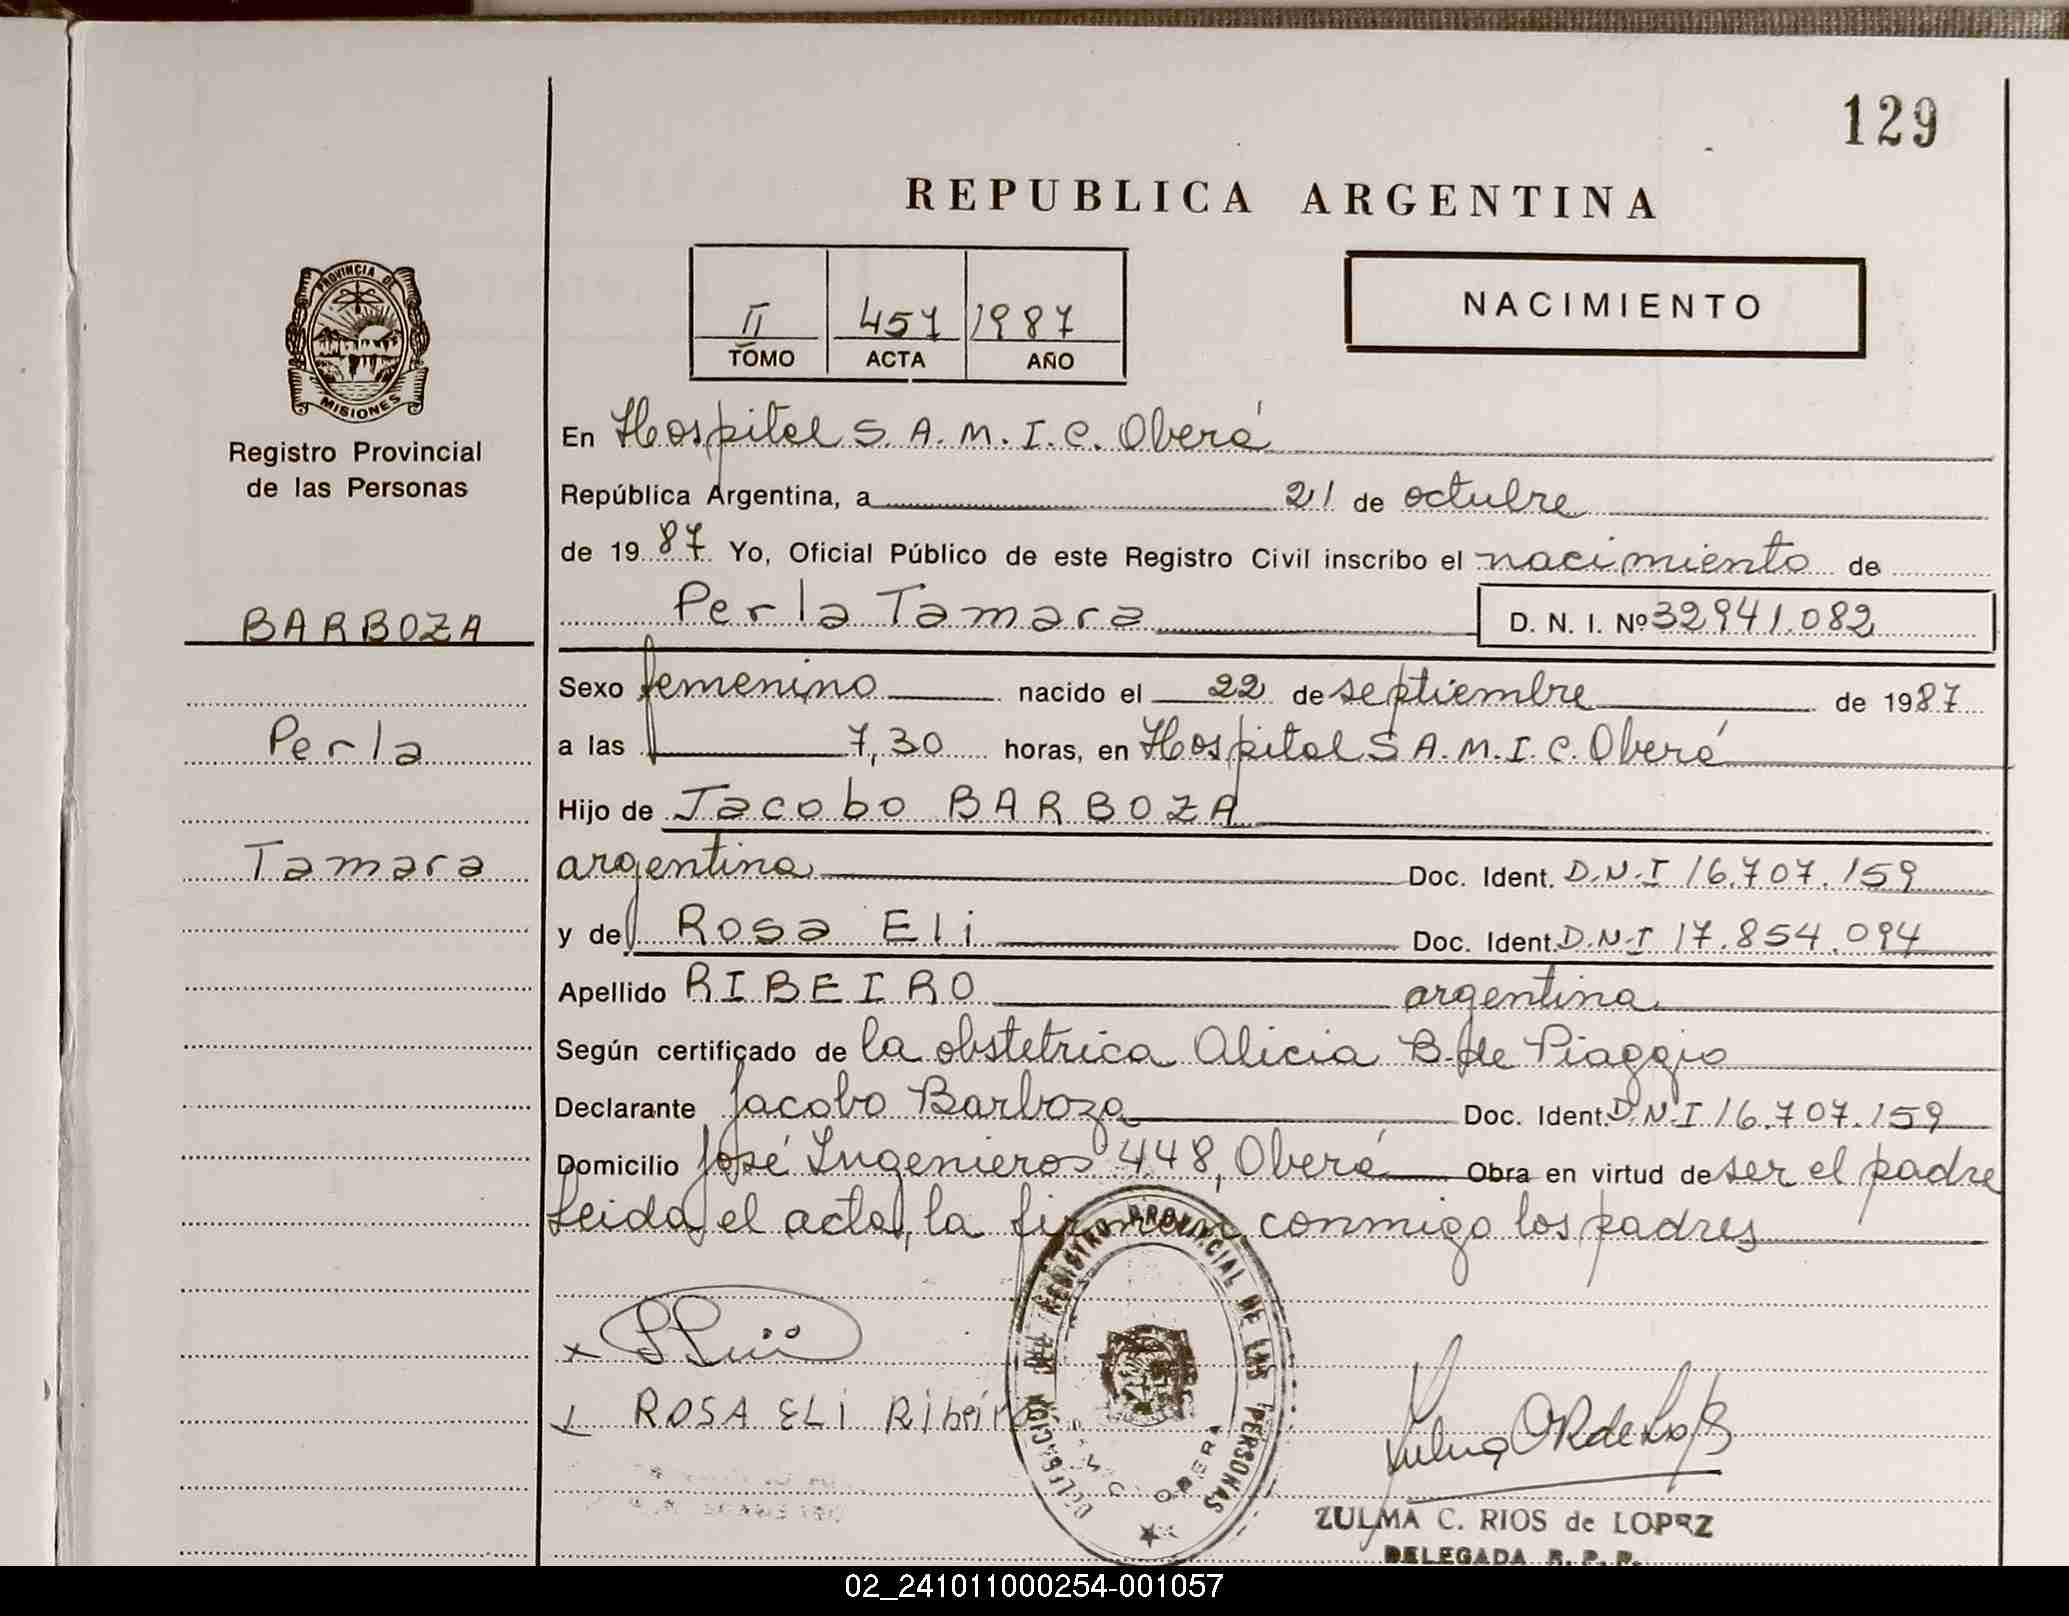 129
REPUBLICA ARGENTINA
PROVINCIA DE
MISIONES
Registro Provincial
de las Personas
II 457 1987
TOMO ACTA AÑO
NACIMIENTO
En Hospital S.A.M.I.C. Oberá
República Argentina, a 21 de octubre
de 1987 Yo, Oficial Público de este Registro Civil inscribo el nacimiento de
BARBOZA
Perla Tamara D. N. I. Nº 32941.082
Sexo femenino nacido el 22 de septiembre de 1987
Perla
a las 7,30 horas, en Hospital S.A.M.I.C. Oberá
Hijo de Jacobo BARBOZA
Tamara
argentina Doc. Ident. D.N.I 16.707.159
y de Rosa Eli Doc. Ident. D.N.I 17.854.094
Apellido RIBEIRO argentina
Según certificado de la obstetrica Alicia B. de Piaggio
Declarante Jacobo Barboza Doc. Ident. D.N.I 16.707.159
Domicilio José Ingenieros 448, Oberá Obra en virtud de ser el padre
Leida el acta, la firman conmigo los padres
DELEGACION DEL REGISTRO PROVINCIAL DE LAS PERSONAS
OBERA
ROSA ELI Ribeiro
ZULMA C. RIOS de LOPEZ
DELEGADA R. P. P.
02_241011000254-001057